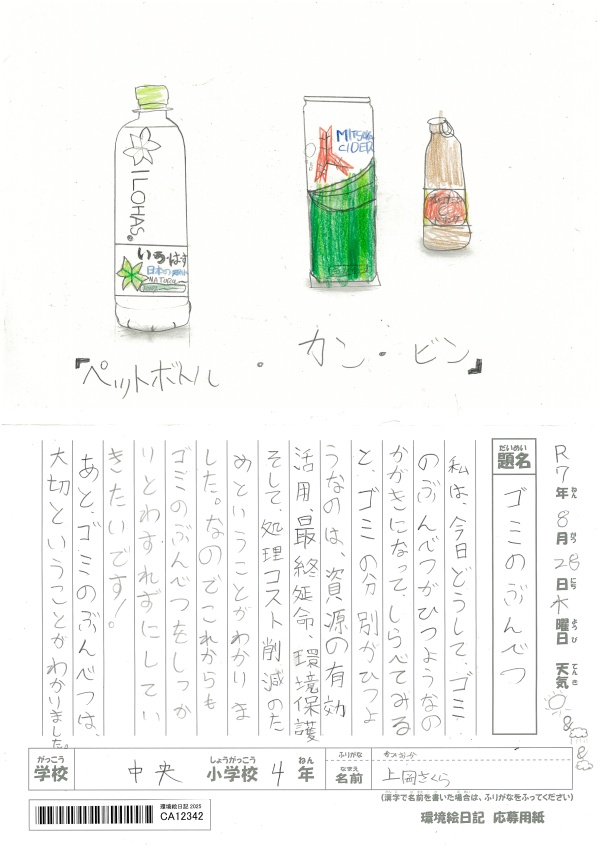 ILOHAS
いろ・はす
日本の
NATURAL
MITSUYA
CIDER
『ペットボトル・カン・ビン』
R7年8月28日木曜日 天気
ねん
がつ
にち
ようび
てんき
だいめい
題名
ゴミのぶんべつ
私は、今日どうして、ゴミ
のぶんべつがひつようなの
かがきになって、しらべてみる
と、ゴミの分別がひつよ
うなのは、資源の有効
活用、最終延命、環境保護
そして、処理コスト削減のた
めということがわかりま
した。なのでこれからも
ゴミのぶんべつをしっか
りとわすれずにしてい
きたいです!
あと、ゴミのぶんべつは、
大切ということがわかりました。
がっこう
学校
中央
しょうがっこう
小学校
4
ねん
年
ふりがな
なまえ
名前
上岡さくら
(漢字で名前を書いた場合は、ふりがなをふってください)
環境絵日記 2025
CA12342
環境絵日記 応募用紙